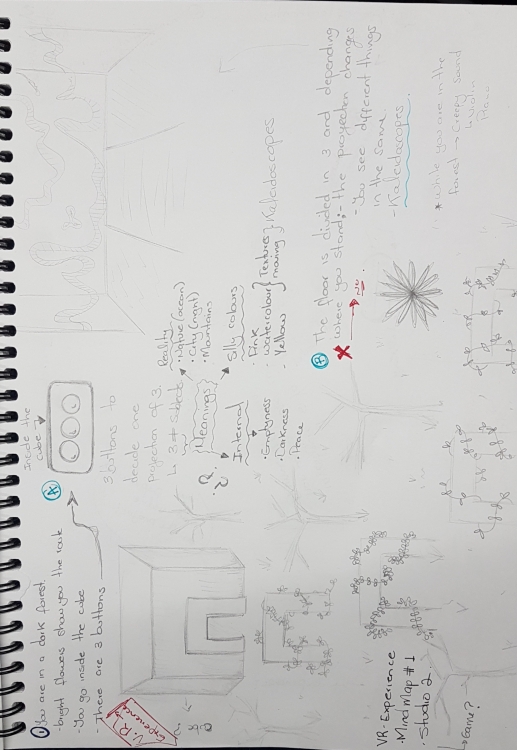 ① You are in a dark forest.
- bright flowers show you the
- You go inside the cube
- There are 3 buttons
V.R.
Experience
A
Inside the
cube
3 buttons to
decide one
projection of 3.
↳ 3 ≠ subject
Meanings
Reality
• Nature (ocean)
• City (night)
• Mountains
Internal
• Emptyness
• Darkness
• Peace
Silly colours
- Pink
- Watercolour
- Yellow
Textures
moving
Kaleidoscopes
B The floor is divided in 3 and depending
where you stand:
- the proyection changes
- You see different things
in the same.
- Kaleidoscopes
NO
* While you are in the
forest → Creepy sound
↳ Violin
Piano
VR-Experience
Mind Map #1
Studio 2.
↳ Game?